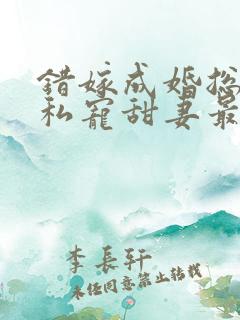 錯嫁成婚總
私寵甜妻最
李長軒
未經同意禁止轉載